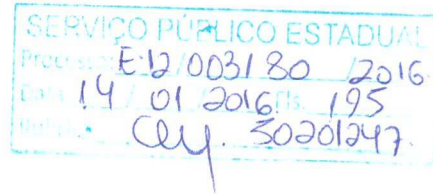 SERVIÇO PÚBLICO ESTADUAL
Processo E-12/003180 /2016
Data 14 / 01 2016 Fls. 195
50201247